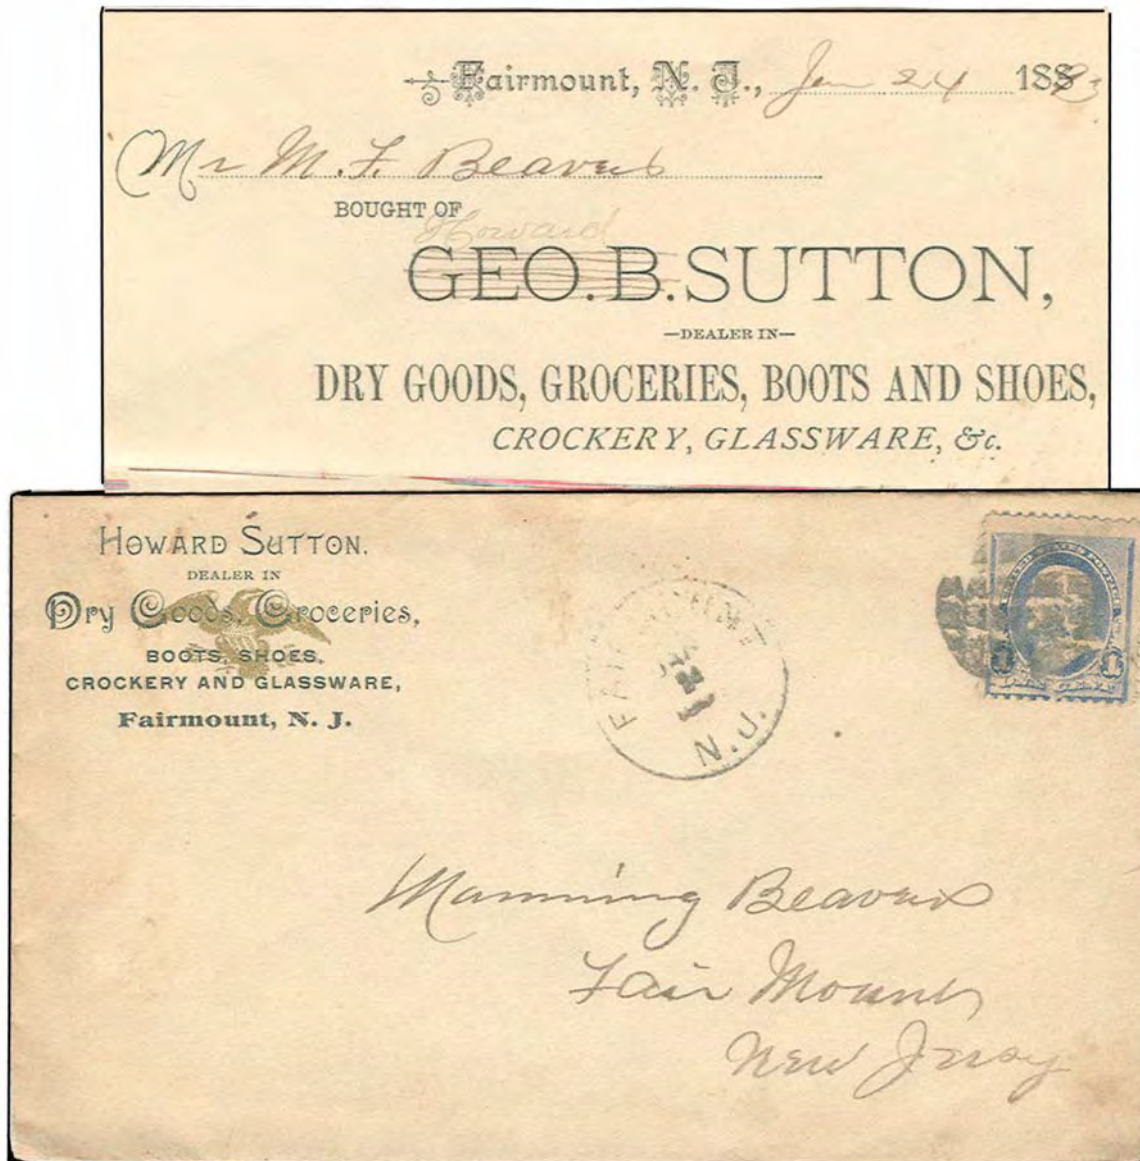 Fairmount, N. J., Jan 24 188
Mr M. F. Beavers
BOUGHT OF
Howard
GEO. B. SUTTON,
—DEALER IN—
DRY GOODS, GROCERIES, BOOTS AND SHOES,
CROCKERY, GLASSWARE, &c.
HOWARD SUTTON.
DEALER IN
Dry Goods, Groceries,
BOOTS, SHOES,
CROCKERY AND GLASSWARE,
Fairmount, N. J.
FAIRMOUNT
N.J.
UNITED STATES POSTAGE
1 1
Manning Beavers
Fair Mount
New Jersey